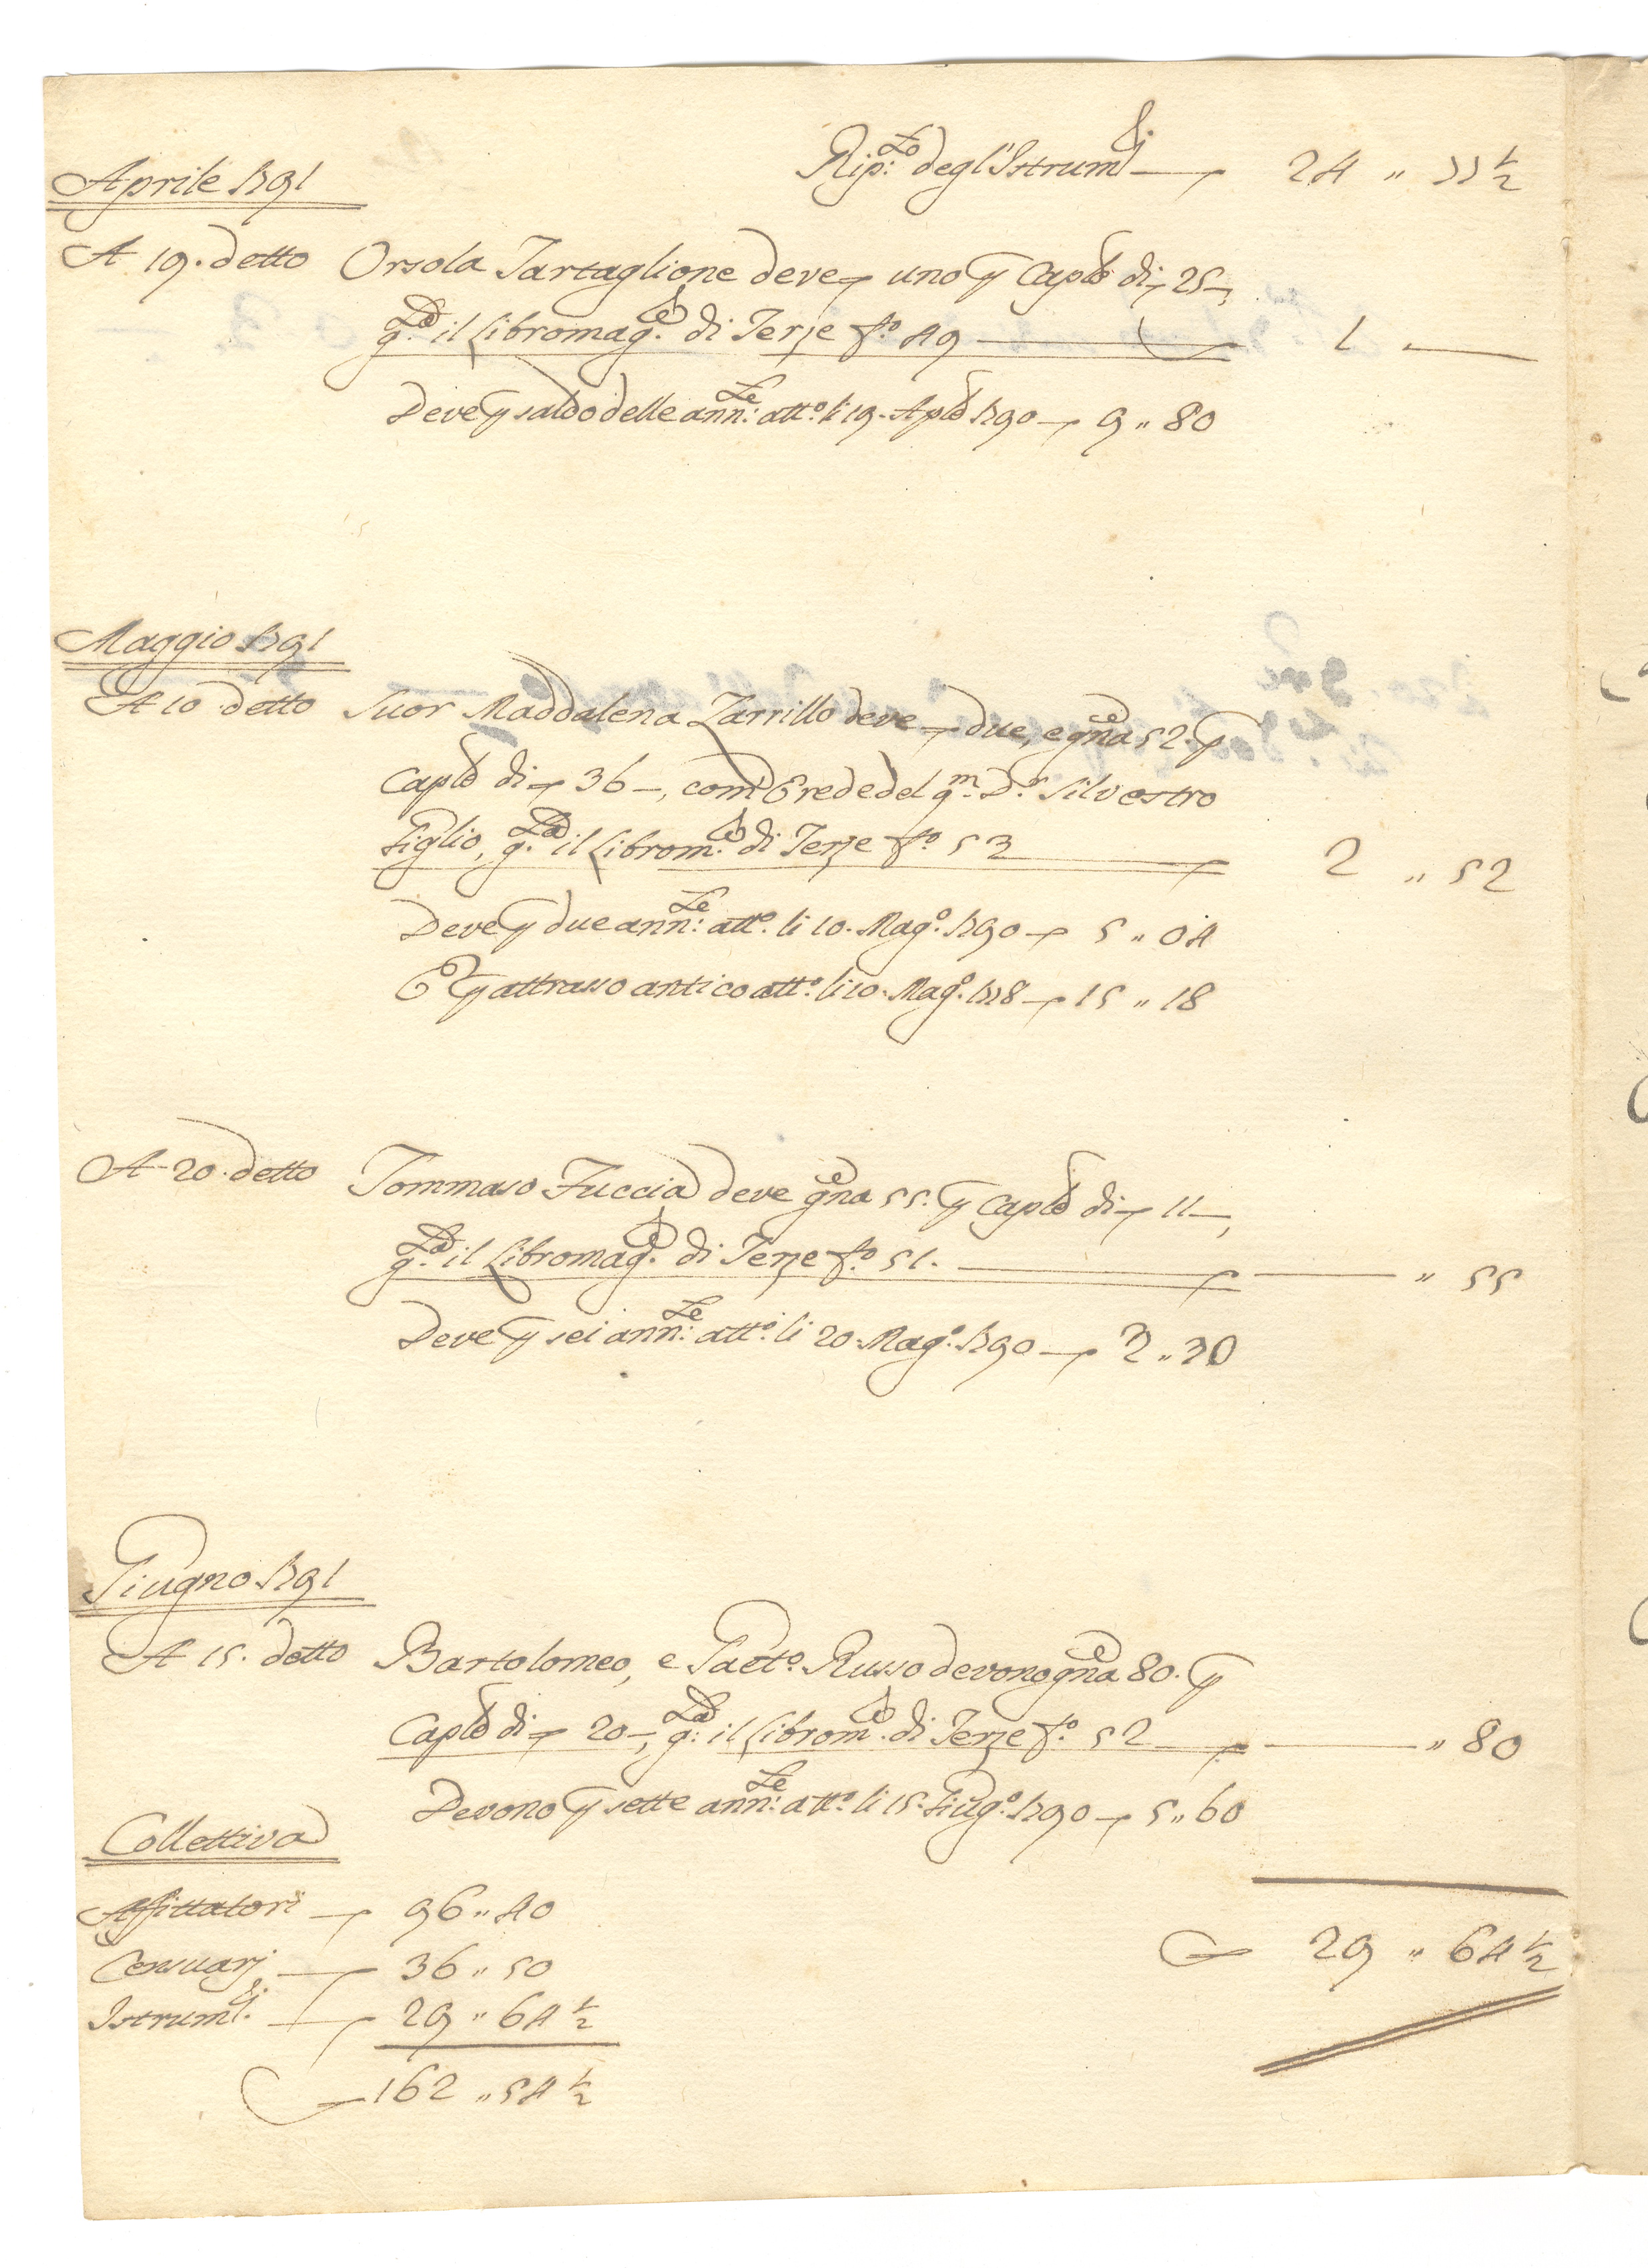 Rip:to degl'Istrumti — 24 " 77 ½
Aprile 1791
A 19. detto Orsola Tartaglione deve uno p Caple di 25—,
g.ta il Libromag.re di Terze f.o 49 — 1 —
Deve p saldo delle ann:te att.o li 19. Aple 1790 — 9 " 80
Maggio 1791
A 10 detto Suor Maddalena Zarrillo deve due, e gna 52. p
Caple di 36—, come Erede del q.m D.r Silvestro
Figlio, g.ta il Librom.re di Terze f.o 53 — 2 " 52
Deve p due ann:te att.o li 10. Mag.o 1790 — 5 " 04
E p attrasso antico att.o li 10. Mag.o 1778 — 15 " 18
A 20. detto Tommaso Fuccia deve gna 55. p Caple di 11—,
g.ta il Libromag.re di Terze f.o 51. — " 55
Deve p sei ann:te att.o li 20. Mag.o 1790 — 3 " 30
Giugno 1791
A 15. detto Bartolomeo, e Gaet.o Russo devono gna 80. p
Caple di 20—, g:ta il Librom.re di Terze f.o 52 — " 80
Devono p sette ann:te att.o li 15. Giug.o 1790 — 5 " 60
Collettiva
Affittatori — 96 " 40
Censuarj — 36 " 50
29 " 64 ½
Istrumti. — 29 " 64 ½
162 " 54 ½